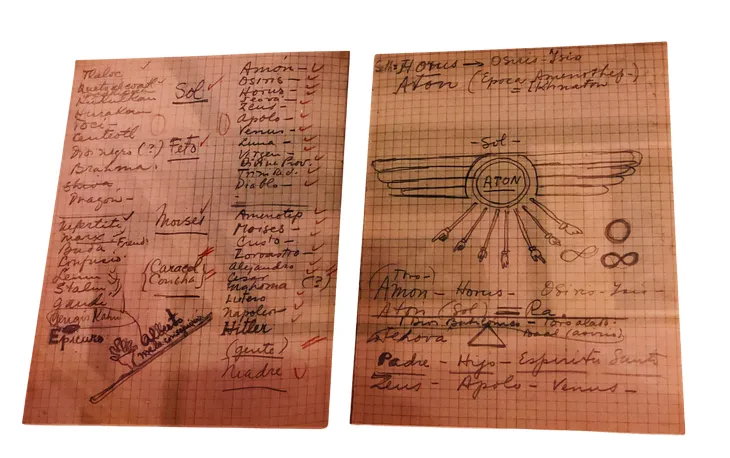 Tlaloc
Quetzalcoatl
Kukulkan
Hurakan
Toci -
Centeotl
Dios negro (?)
Brahma.
Shiva.
Dragon -
Nefertiti
Marx
Buda - Freud
Confucio
Lenin
Stalin
Gandi
Gengis Kahn
Epicuro
Sol
Feto
Moises
(Caracol
Concha)
Alberto
Amón -
Osiris -
Horus -
Jeova -
Zeus -
Apolo -
Venus -
Luna -
Virgen -
Divina Prov.
Trinidad -
Diablo -
Amenotep
Moises -
Cristo -
Zoroastro -
Alejandro -
Cesar
Mahoma (?)
Lutero
Napoleon
Hitler
(gente)
Madre
Horus → Osiris - Isis
Aton (Epoca Amenothep -
= Ekhnaton
- Sol -
ATON
∞
∞
(Toro -)
Amon - Horus - Osiris - Isis -
Aton (Sol) = Ra
Toro alado -
Jehova
Padre - Hijo - Espiritu Santo
Zeus - Apolo - Venus -